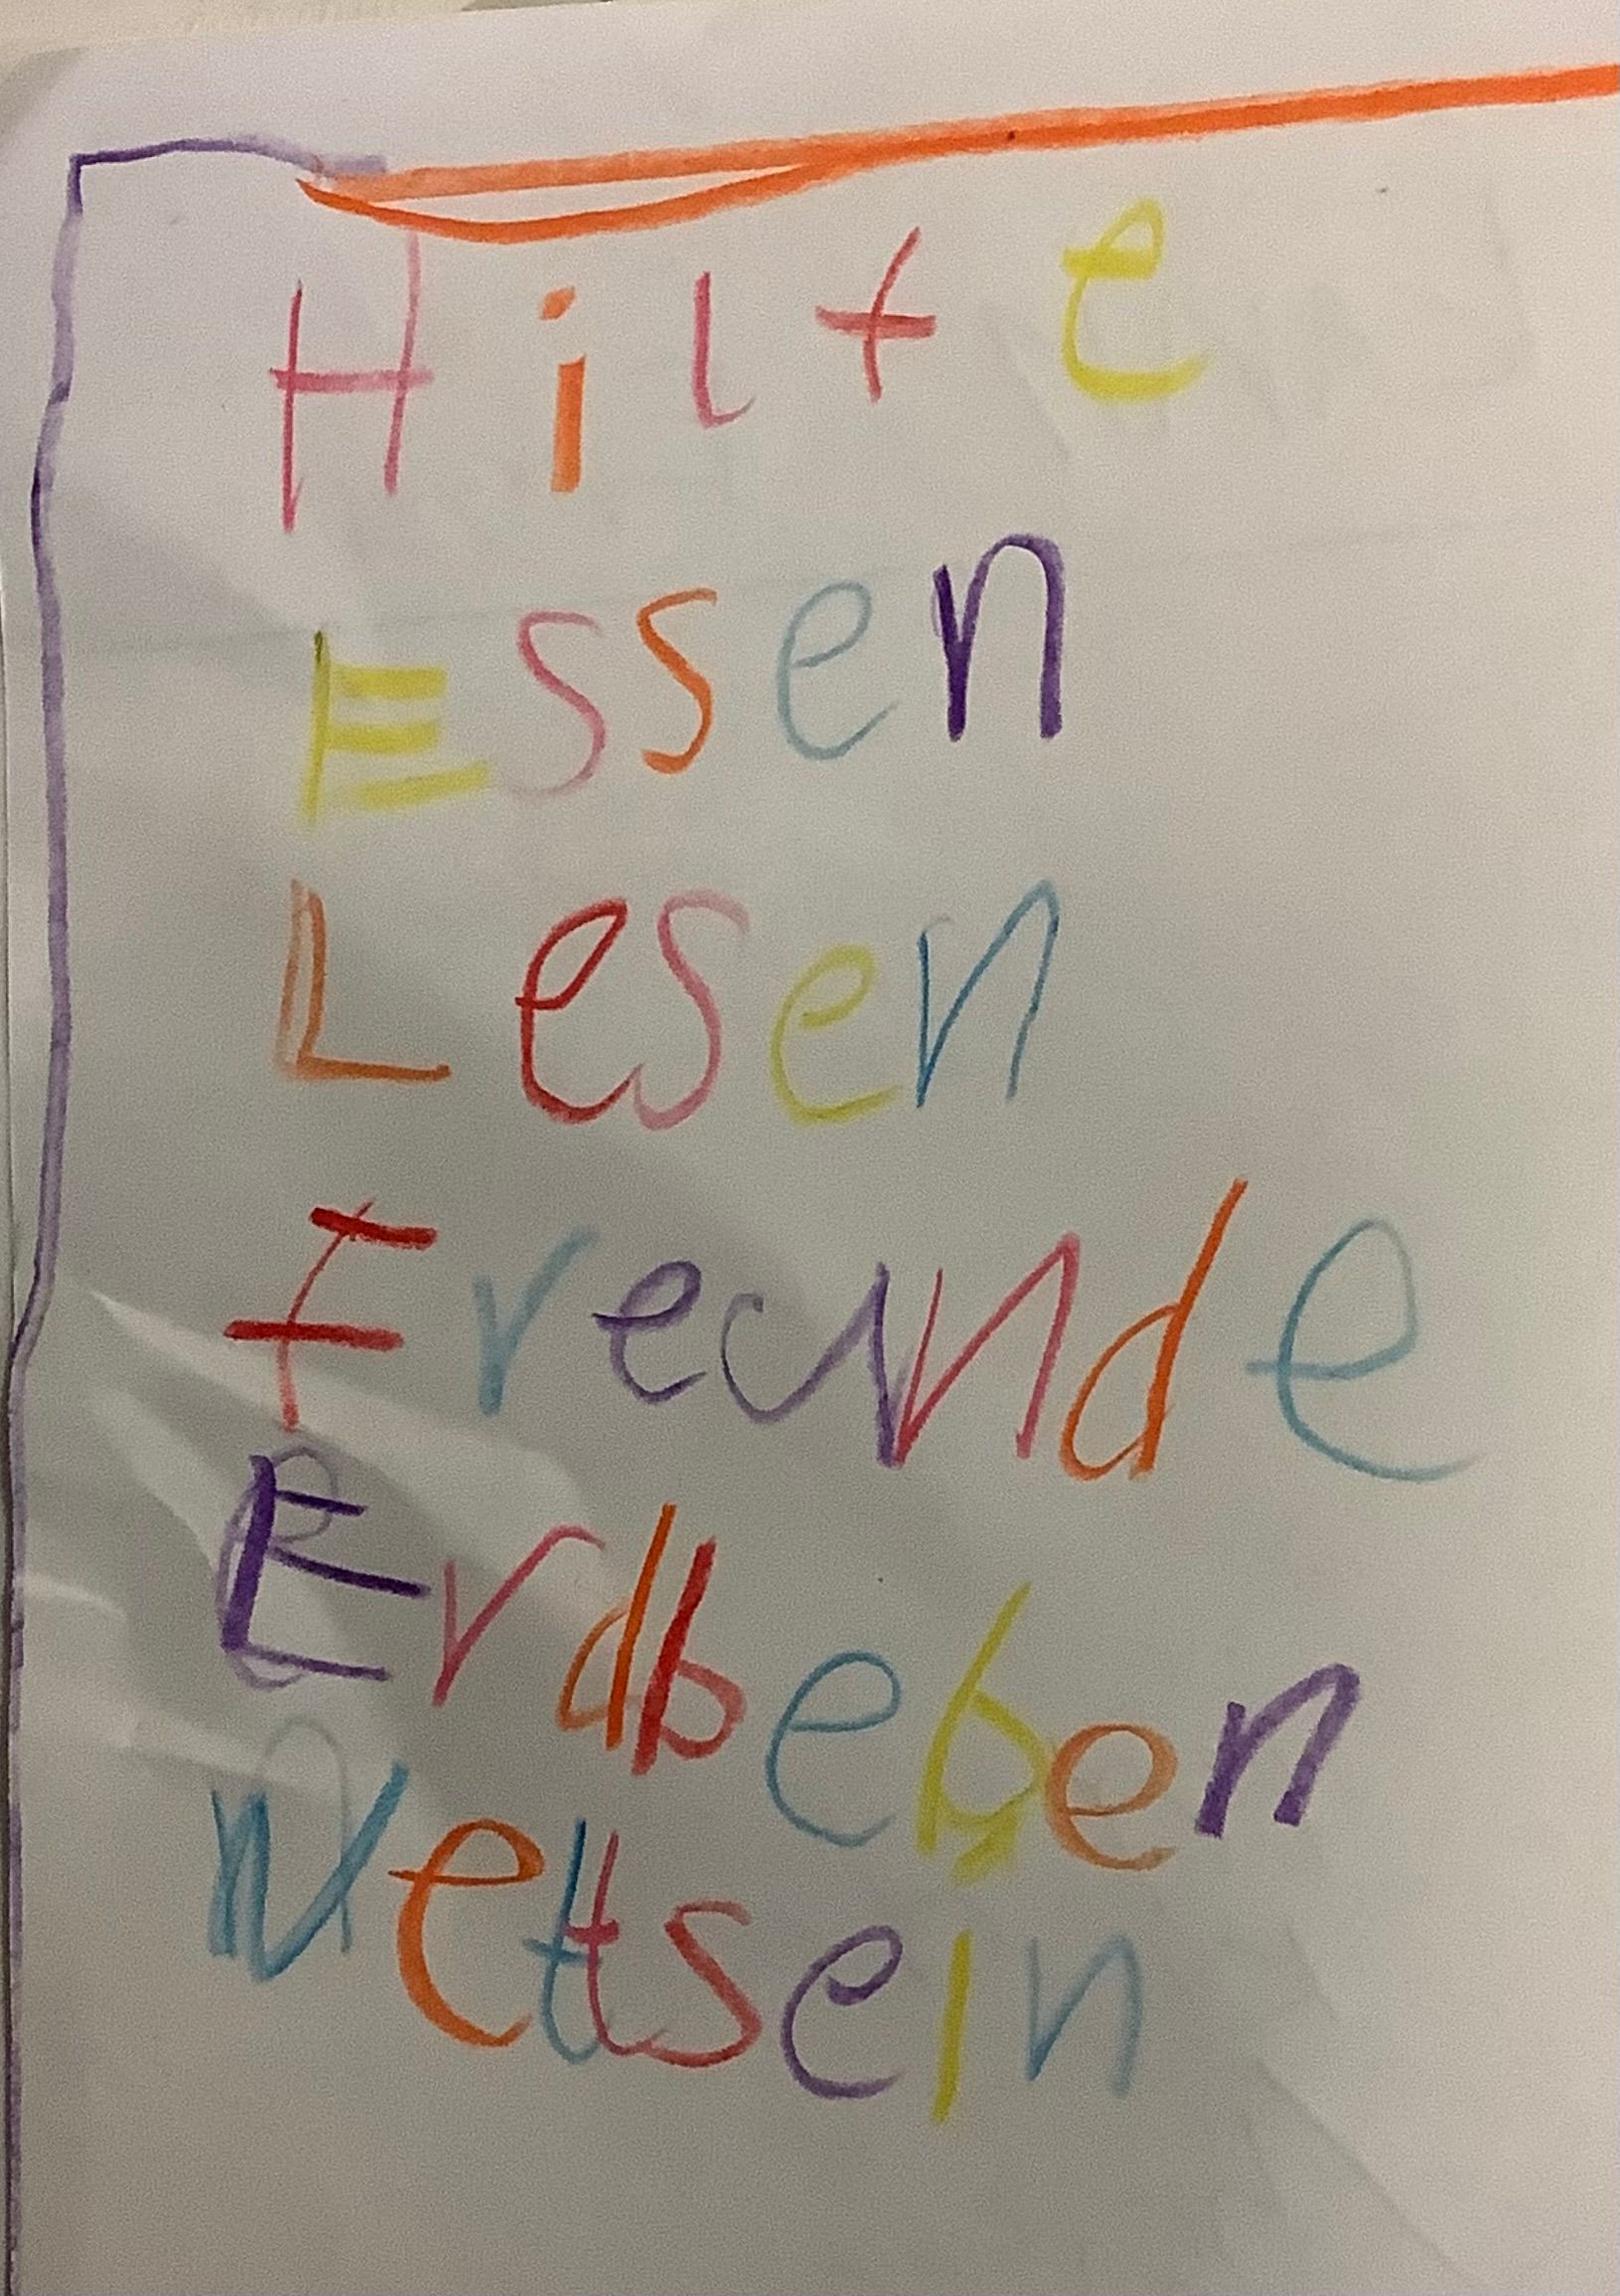 Hilfe
Essen
Lesen
Freunde
Erdbeben
Nettsein